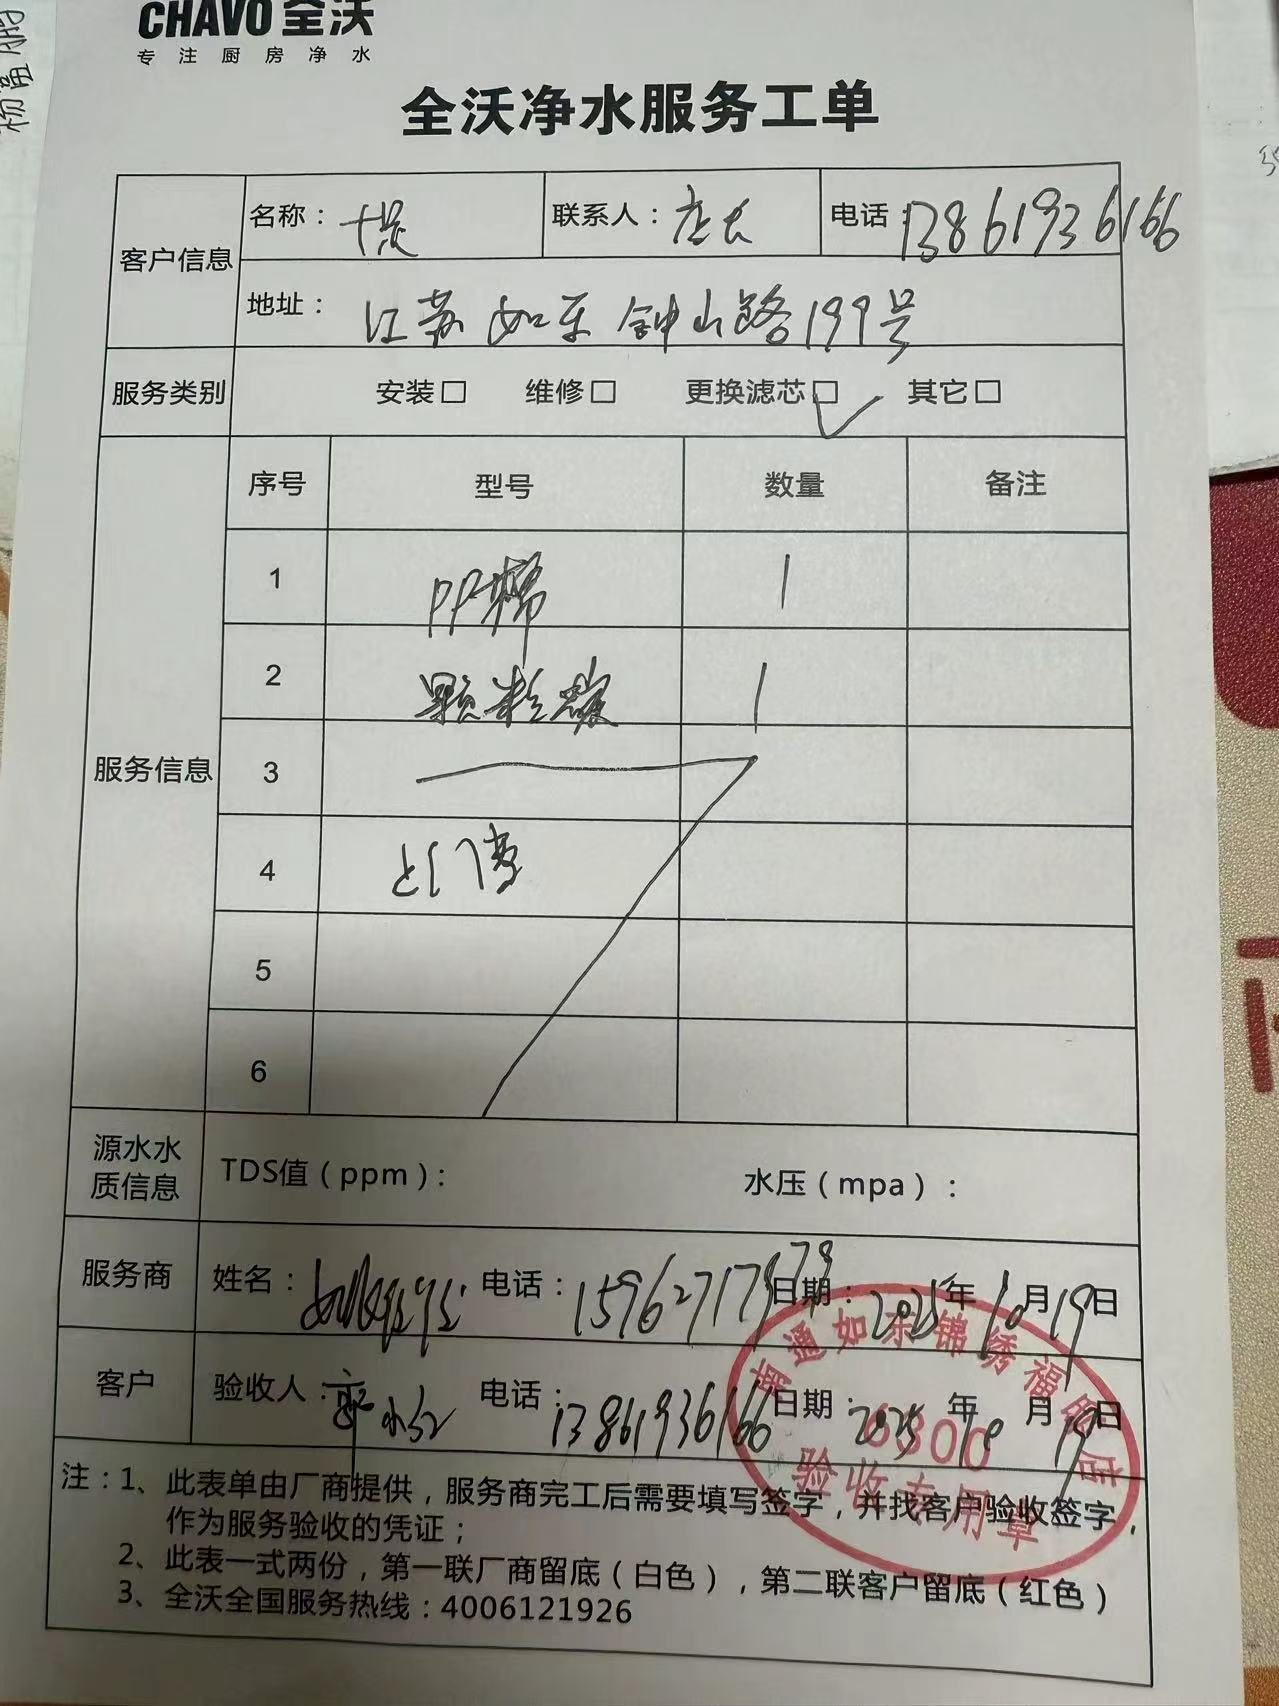 CHAVO 全沃
专注厨房净水
全沃净水服务工单
客户信息 名称： 联系人：店长 电话：13861936166
地址：江苏如东钟山路199号
服务类别 安装□ 维修□ 更换滤芯□ 其它□
服务信息 序号 型号 数量 备注
1 PP棉 1
2 颗粒碳 1
3
4 上门费
5
6
源水水质信息 TDS值（ppm）： 水压（mpa）：
服务商 姓名： 电话： 日期：2025年10月19日
客户 验收人： 电话：13861936166 日期：2025年10月19日
南通如东锦绣福
6300
验收专用章
注：1、此表单由厂商提供，服务商完工后需要填写签字，并找客户验收签字，
作为服务验收的凭证；
2、此表一式两份，第一联厂商留底（白色），第二联客户留底（红色）
3、全沃全国服务热线：4006121926